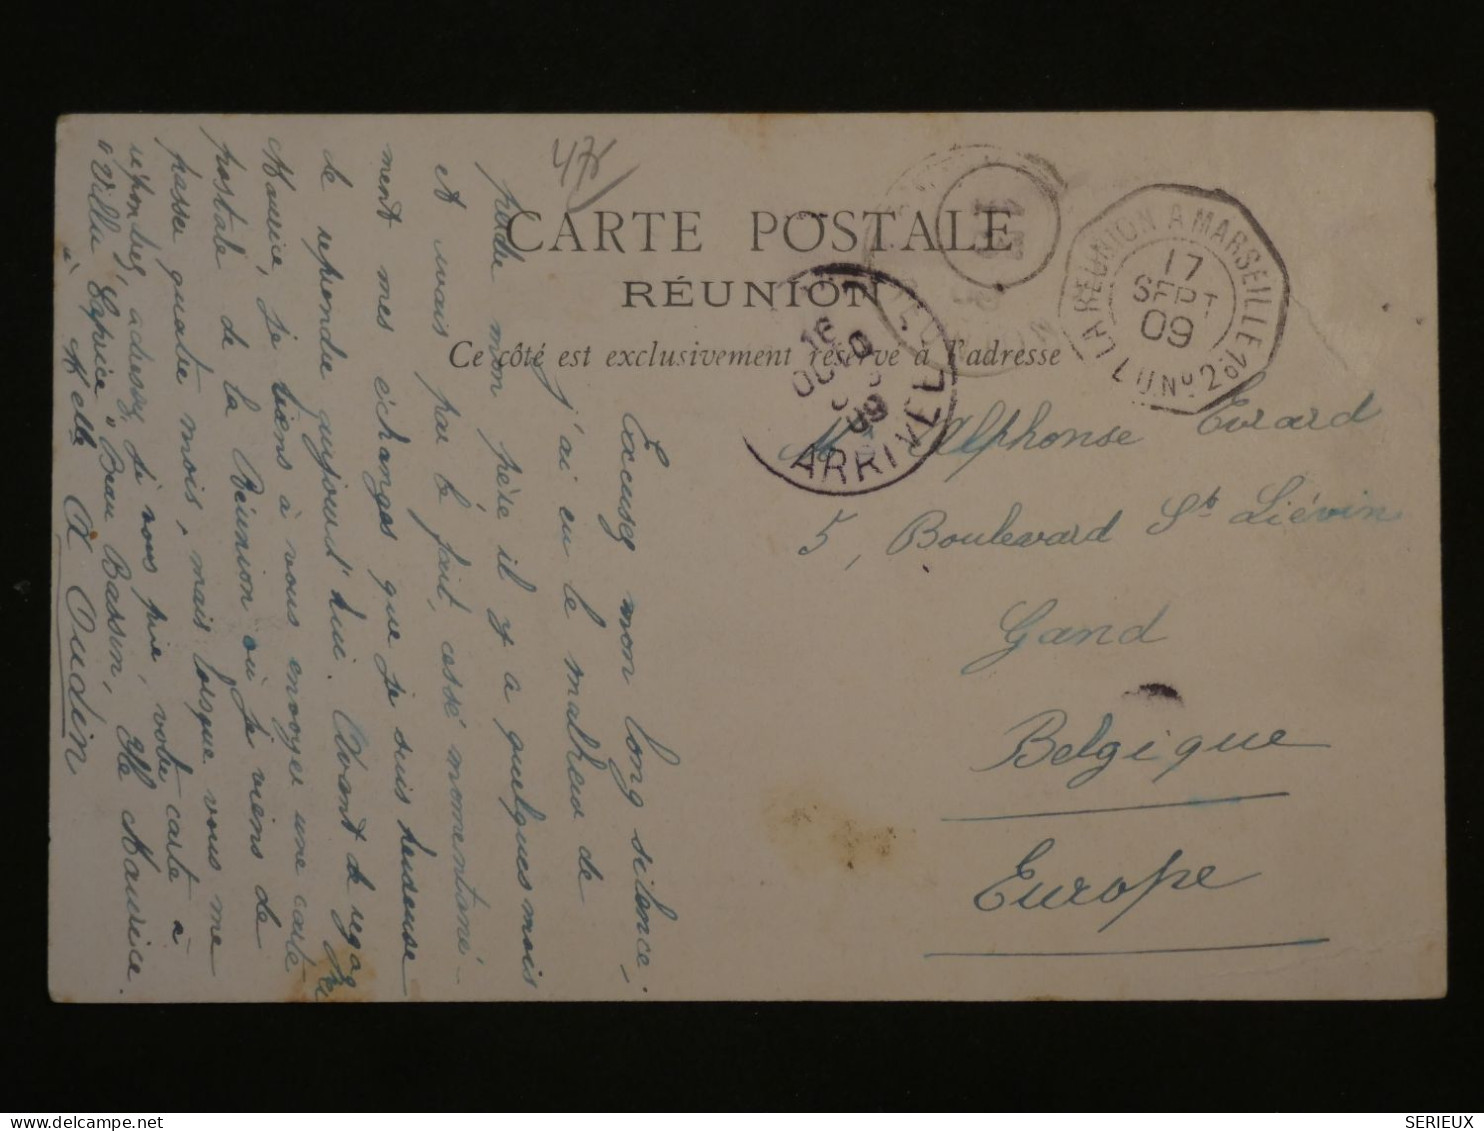 475
CARTE POSTALE
RÉUNION
Ce côté est exclusivement réservé à l'adresse
LA RÉUNION A MARSEILLE
17
SEPT
09
L.U. Nº 2
16
09
ARRIVÉE
RÉUNION
Mr Alphonse Evrard
5, Boulevard St Liévin
Gand
Belgique
Europe
Excusez mon long silence,
j'ai eu le malheur de
perdre mon père il y a quelques mois
et avais par le fait, cessé momentané-
ment mes échanges que je suis heureuse
de reprendre aujourd'hui. Avant de regagner
Maurice, je tiens à vous envoyer une carte
postale de la Réunion où je viens de
passer quatre mois, mais lorsque vous me
répondrez, adressez, je vous prie, votre carte à
"Villa Caprice" Beau Bassin, Ile Maurice.
à Melle A Oudin
SERIEUX - DELCAMPE.NET